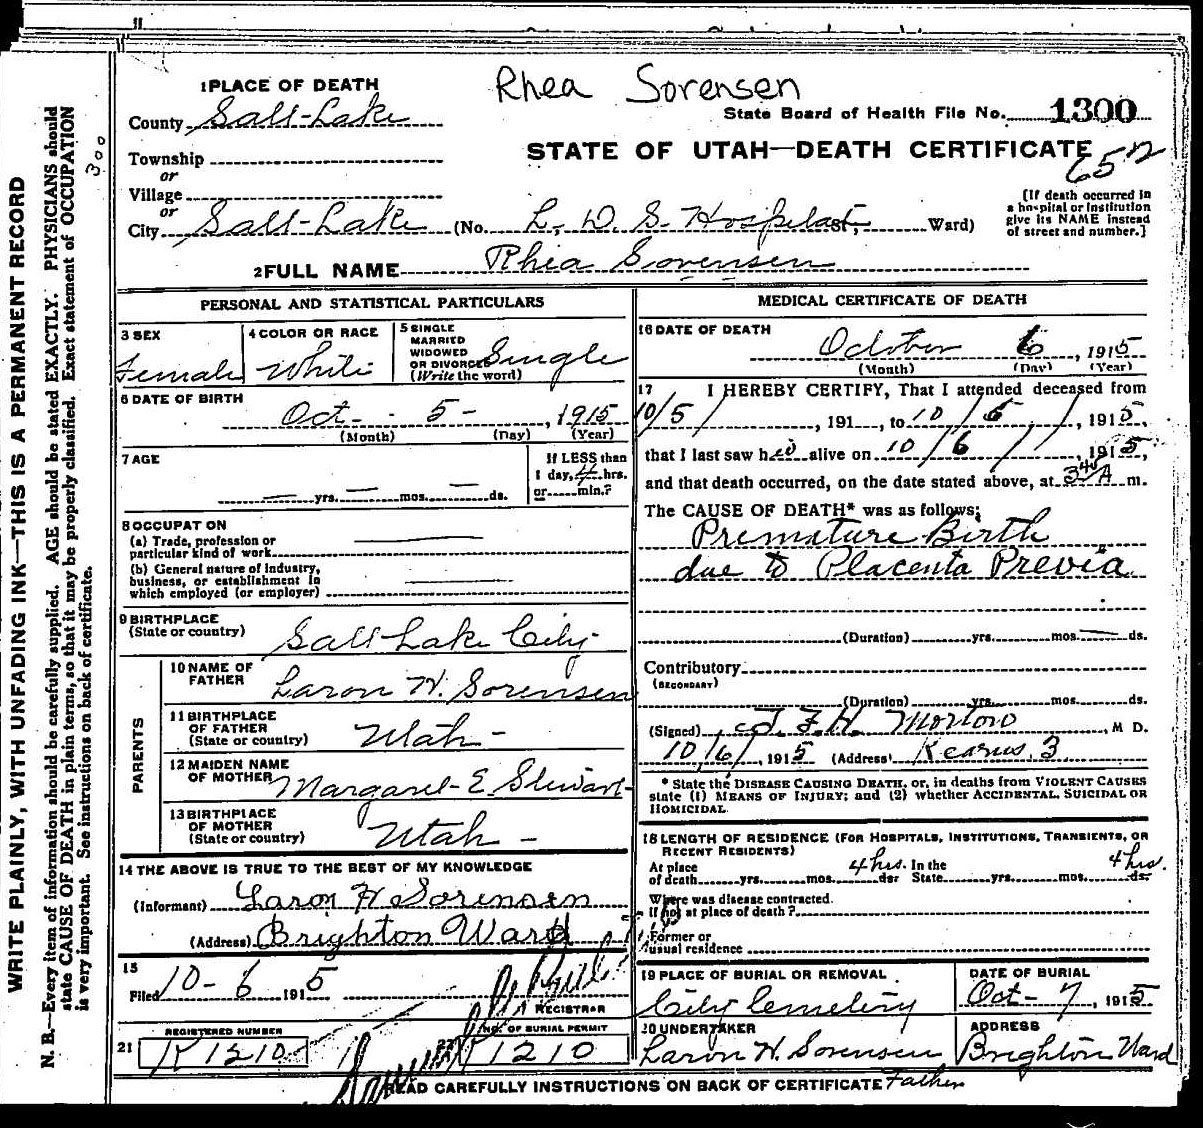 Rhea Sorensen
1 PLACE OF DEATH
County Salt Lake
State Board of Health File No. 1300
Township
or
Village
or
City Salt Lake (No. L. D. S. Hospital St., Ward)
STATE OF UTAH—DEATH CERTIFICATE
[If death occurred in
a hospital or institution
give its NAME instead
of street and number.]
2 FULL NAME Rhea Sorensen
PERSONAL AND STATISTICAL PARTICULARS
3 SEX
Female
4 COLOR OR RACE
White
5 SINGLE
MARRIED
WIDOWED
OR DIVORCED
(Write the word)
Single
6 DATE OF BIRTH
Oct - 5 - , 1915
(Month) (Day) (Year)
7 AGE
yrs. mos. ds.
If LESS than
1 day, 4 hrs.
or min.?
8 OCCUPAT ON
(a) Trade, profession or
particular kind of work
(b) General nature of industry,
business, or establishment in
which employed (or employer)
9 BIRTHPLACE
(State or country) Salt Lake City
PARENTS
10 NAME OF
FATHER Laron H. Sorensen
11 BIRTHPLACE
OF FATHER
(State or country) Utah -
12 MAIDEN NAME
OF MOTHER Margaret E. Stewart
13 BIRTHPLACE
OF MOTHER
(State or country) Utah -
14 THE ABOVE IS TRUE TO THE BEST OF MY KNOWLEDGE
(Informant) Laron H Sorensen
(Address) Brighton Ward
15
Filed 10 - 6 1915
REGISTRAR
21 REGISTERED NUMBER
K 1210
22 NO. OF BURIAL PERMIT
1210
MEDICAL CERTIFICATE OF DEATH
16 DATE OF DEATH
October 6, 1915
(Month) (Day) (Year)
17 I HEREBY CERTIFY, That I attended deceased from
10/5/ , 191 , to 10/6/ , 1915,
that I last saw h alive on 10/6/ , 1915,
and that death occurred, on the date stated above, at 3 40 A m.
The CAUSE OF DEATH* was as follows:
Premature Birth
due to Placenta Previa
(Duration) yrs. mos. ds.
Contributory
(SECONDARY)
(Duration) yrs. mos. ds.
(Signed) F. H. Morton, M D.
10/6/ 1915 (Address) Kearns 3
* State the DISEASE CAUSING DEATH, or, in deaths from VIOLENT CAUSES
state (1) MEANS OF INJURY; and (2) whether ACCIDENTAL, SUICIDAL OR
HOMICIDAL.
18 LENGTH OF RESIDENCE (FOR HOSPITALS, INSTITUTIONS, TRANSIENTS, OR
RECENT RESIDENTS)
At place
of death yrs. mos. 4 hrs. ds. In the
State yrs. mos. 4 hrs. ds.
Where was disease contracted.
if not at place of death?
Former or
usual residence
19 PLACE OF BURIAL OR REMOVAL
City Cemetery
DATE OF BURIAL
Oct - 7, 1915
20 UNDERTAKER
Laron H. Sorensen
ADDRESS
Brighton Ward
READ CAREFULLY INSTRUCTIONS ON BACK OF CERTIFICATE Father
WRITE PLAINLY, WITH UNFADING INK—THIS IS A PERMANENT RECORD
N. B.—Every item of information should be carefully supplied. AGE should be stated EXACTLY. PHYSICIANS should
state CAUSE OF DEATH in plain terms, so that it may be properly classified. Exact statement of OCCUPATION
is very important. See instructions on back of certificate.
300